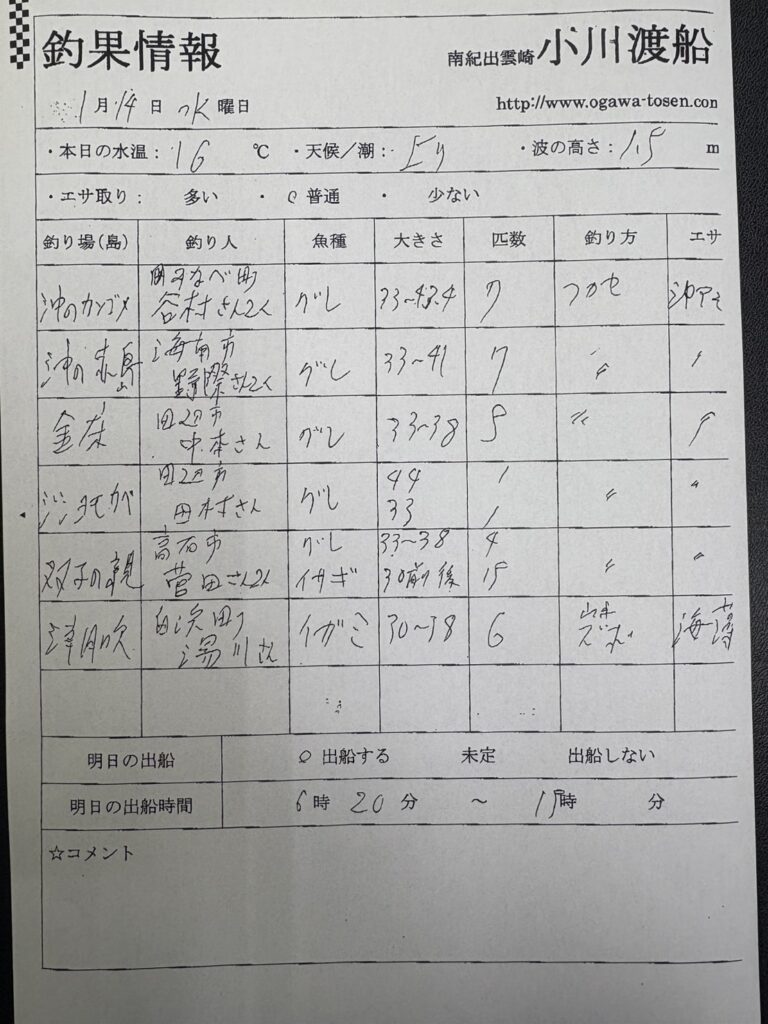 釣果情報
南紀出雲崎 小川渡船
1月14日 水曜日
http://www.ogawa-tosen.con
・本日の水温：16 ℃ ・天候／潮： ・波の高さ：1.5 m
・エサ取り： 多い ・ 普通 ・ 少ない
釣り場(島) 釣り人 魚種 大きさ 匹数 釣り方 エサ
沖のカンゴメ 谷村さん2人 グレ 33〜43.4 7 フカセ 沖アミ
沖の赤島 海南市 野際さん2人 グレ 33〜41 7 〃 〃
田辺市 中本さん グレ 33〜38 5 〃 〃
田辺市 田村さん グレ 44 1 〃 〃
33 1
双子の親 高石市 菅田さん2人 グレ 33〜38 4 〃 〃
イサギ 30前後 15
白浜町 湯川さん イガミ 30〜38 6 海藻
明日の出船 出船する 未定 出船しない
明日の出船時間 6時 20分 〜 15時 分
☆コメント